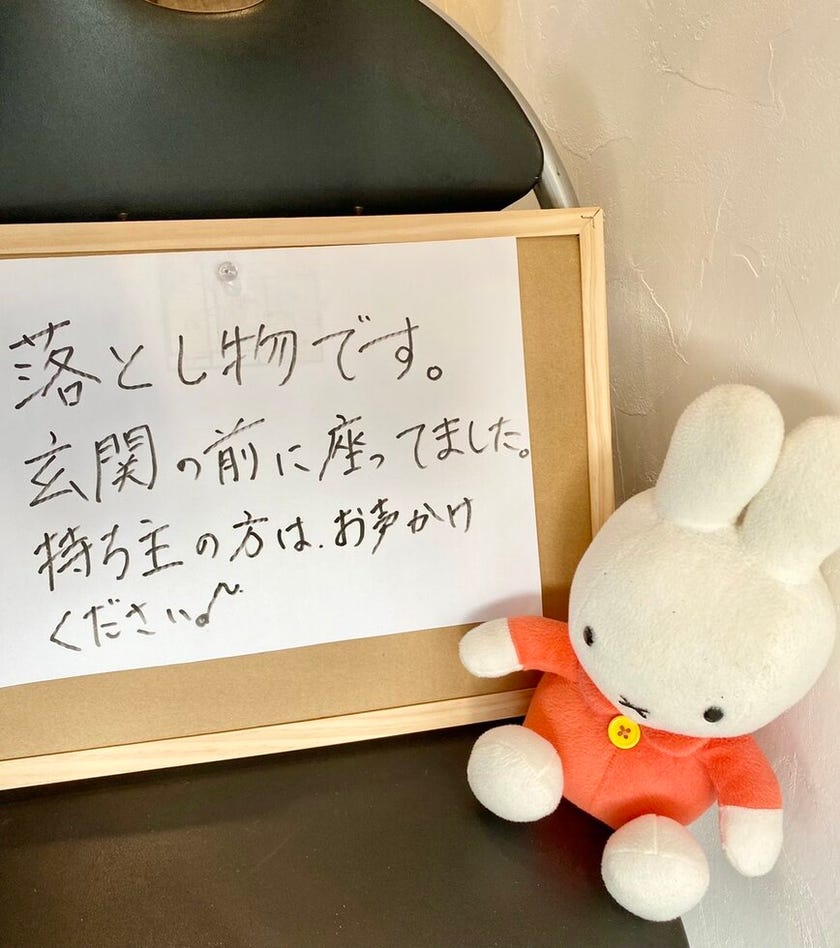 落とし物です。
玄関の前に座ってました。
持ち主の方は、お声かけ
ください。♪